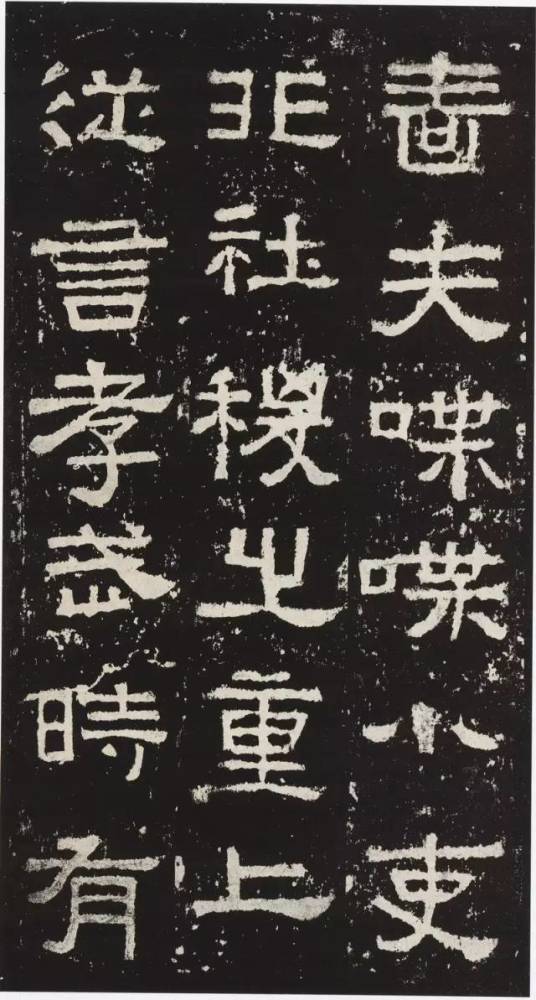 啬夫喋喋小吏
非社稷之重上
從言孝武時有